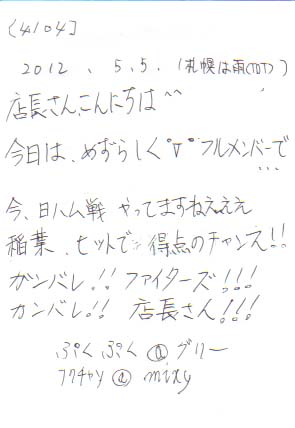 (4104)
2012、5.5.(札幌は雨(ToT))
店長さん、こんにちは^^
今日は、めずらしく°∇°フルメンバーで…
今、日ハム戦 やってますねえええ
稲葉、ヒットで 得点のチャンス!!
ガンバレ!! ファイターズ!!!
カンバレ!! 店長さん!!!
ぷくぷく@グリー
フクチャン@mixy